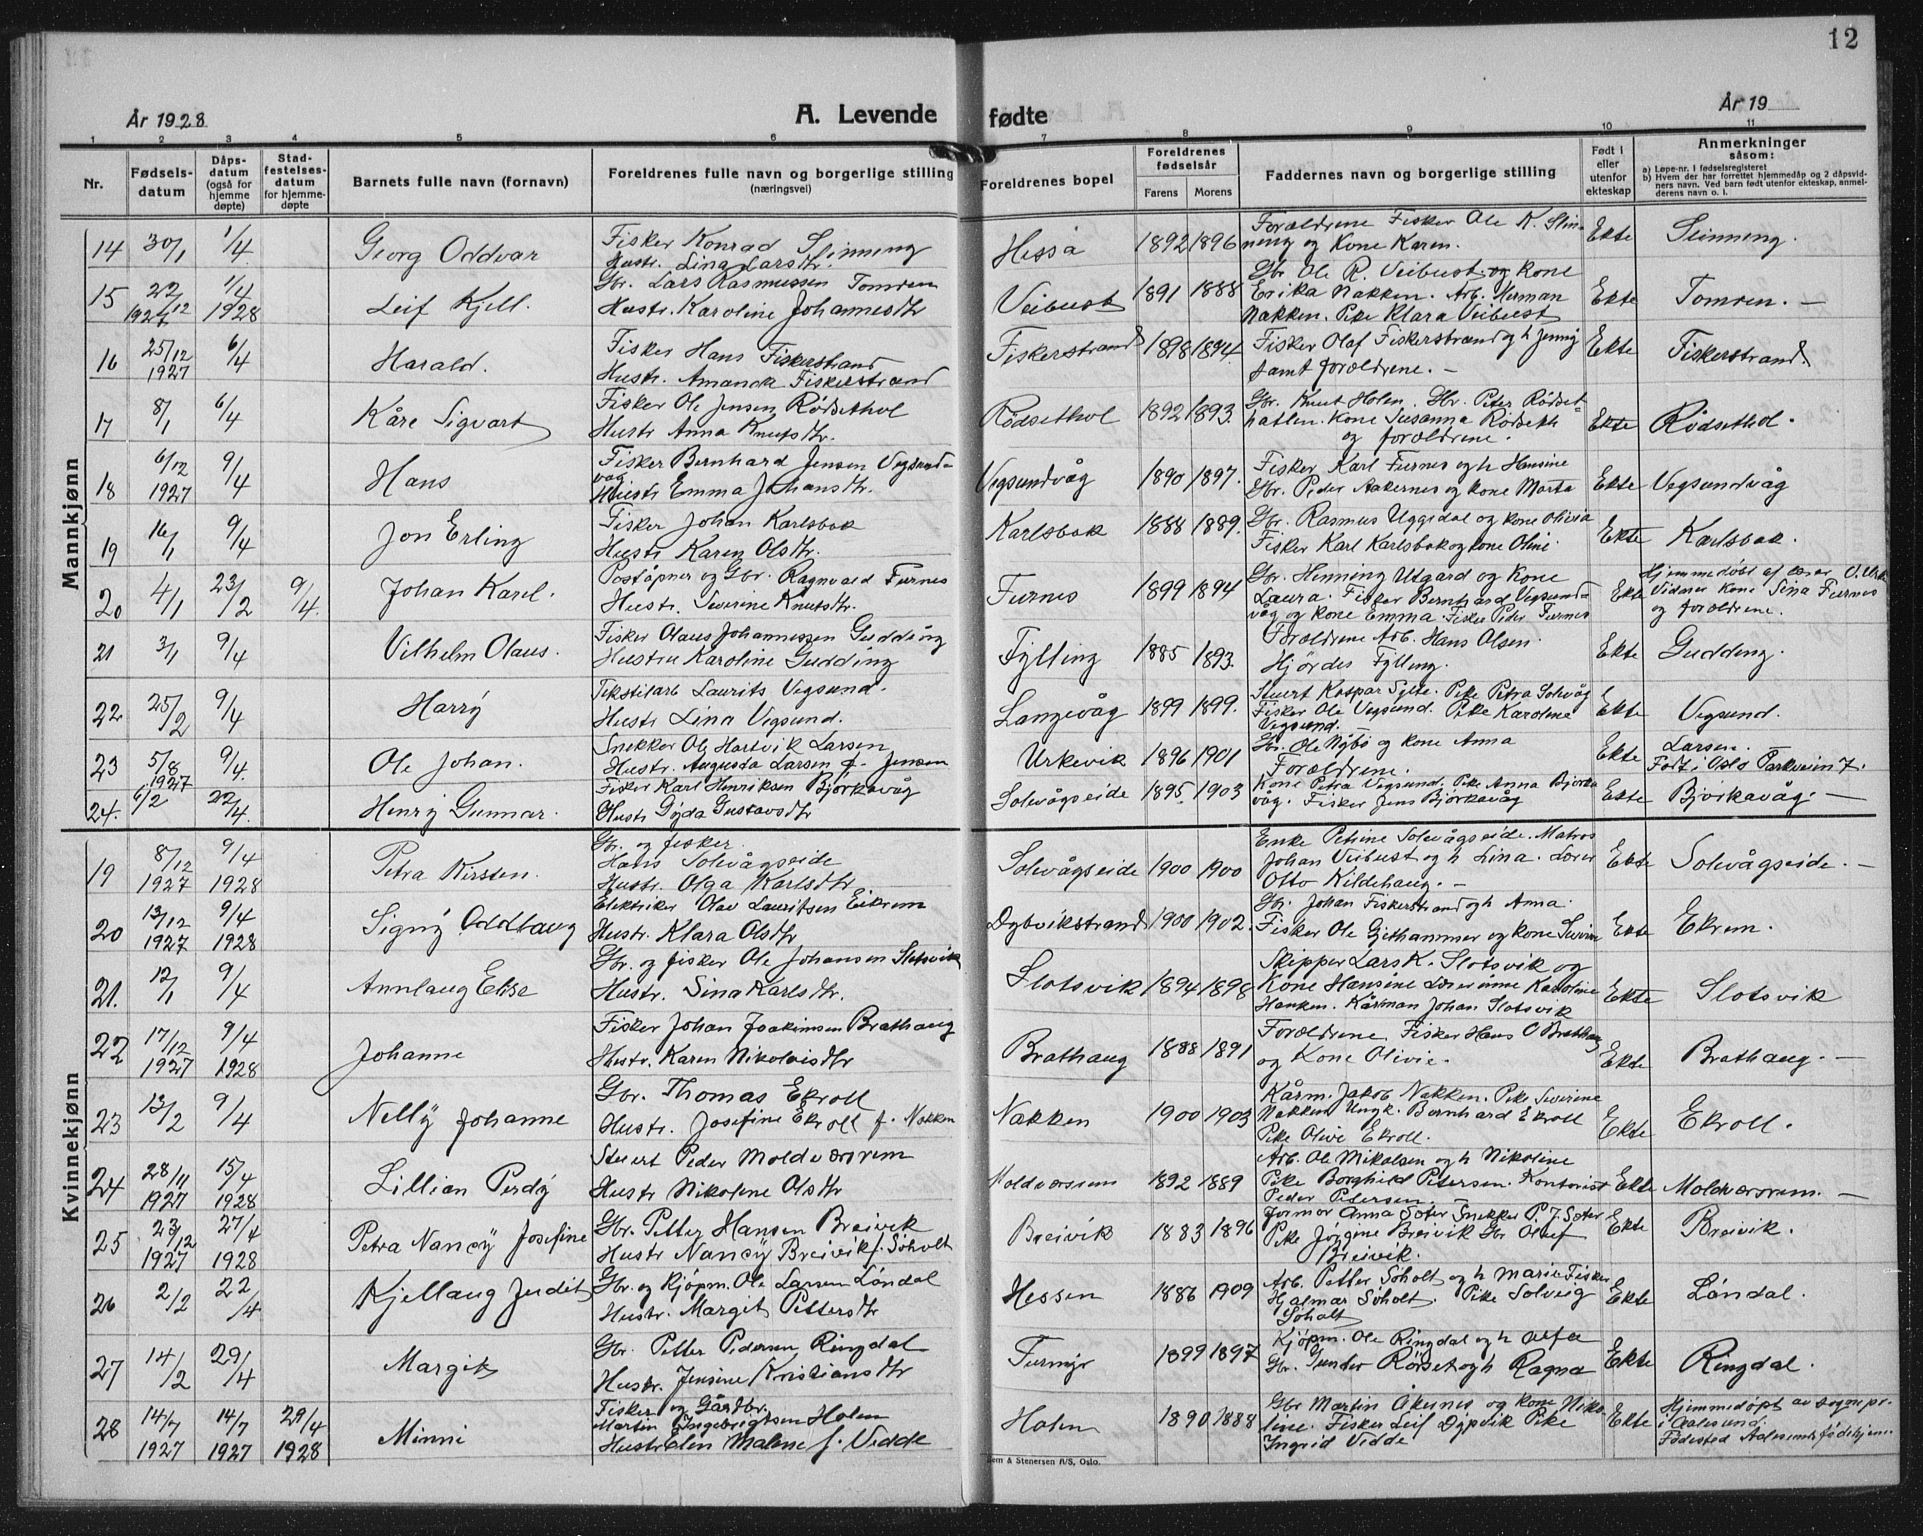 12
År 1928
A. Levende
fødte
År 19
1 2 3 4 5 6 7 8 9 10 11
Nr.
Fødsels-
datum
Dåps-
datum
(også for
hjemme
døpte)
Stad-
festelses-
datum
for hjemme-
døpte
Barnets fulle navn (fornavn)
Foreldrenes fulle navn og borgerlige stilling
(næringsvei)
Foreldrenes bopel
Foreldrenes
fødselsår
Farens Morens
Faddernes navn og borgerlige stilling
Født i
eller
utenfor
ekteskap
Anmerkninger
såsom:
a) Løpe-nr. i fødselsregisteret
b) Hvem der har forrettet hjemmedåp og 2 dåpsvid-
ners navn. Ved barn født utenfor ekteskap, anmel-
derens navn o. l.
Mannkjønn
14 30/1 1/4 Georg Oddvar
Fisker Konrad Slinning
Hustr. Lina Larsdtr.
Hessa 1892 1896
Forældrene Fisker Ole K. Slin-
ning og Kone Karen.
Ekte Slinning.
15 22/12 1927 1/4 1928 Leif Kjell.
Gbr. Lars Rasmussen Tomren
Hustr. Karoline Johannesdtr
Veibust 1891 1888
Gbr. Ole R. Veibust og kone
Erika Nakken. Arb. Herman
Nakken. Pike Klara Veibust
Ekte Tomren. —
16 25/12 1927 6/4 Harald.
Fisker Hans Fiskerstrand
Hustr. Amanda Fiskerstrand
Fiskerstrand 1898 1894.
Fisker Olaf Fiskerstrand og h Jenny
samt forældrene. —
Ekte Fiskerstrand
17 8/1 6/4 Kåre Sigvart
Fisker Ole Jensen Rødsethol
Hustr Anna Knutsdtr.
Rødsethol 1892 1893.
Gbr. Knut Holen. Gbr. Peter Rødset-
hatlen. Kone Susanna Rødseth
og forældrene.
Ekte Rødsethol.
18 6/12 1927 9/4 Hans
Fisker Bernhard Jensen Vegsund-
våg
Hustr Emma Johansdtr.
Vegsundvåg 1890 1897.
Fisker Karl Furnes og h Hansine
Gbr. Peder Aakernes og kone Marta
Ekte Vegsundvåg
19 16/1 9/4 Jon Erling
Fisker Johan Karlsbak
Hustr Karen Olsdtr.
Karlsbak 1888 1889.
Gbr. Rasmus Uggedal og kone Olivia
Fisker Karl Karlsbak og kone Oline
Ekte Karlsbak.
20 4/1 23/2 9/4. Johan Karel.
Poståpner og Gbr. Ragnvald Furnes
Hustr. Severine Knutsdtr.
Furnes 1899 1894
Gbr. Henning Utgard og kone
Laura. Fisker Bernhard Vegsund-
våg og kone Emma. Fisker Peder Furnes
Ekte
Hjemmedøbt af lærer
Vidner Kone Sina Furnes
og forældrene.
21 3/1 9/4 Vilhelm Olaus.
Fisker Olaus Johannessen Gudding
Hustru Karoline Gudding
Fylling 1885 1893.
Forældrene Arb. Hans Olsen.
Hjørdis Fylling.
Ekte Gudding.
22 25/2 9/4 Harrÿ
Tekstilarb Laurits Vegsund.
Hustr Lina Vegsund.
Langevåg 1899 1899.
Stuert Kaspar Sylte. Pike Petra Solvåg
Fisker Ole Vegsund. Pike Karoline
Vegsund.
Ekte Vegsund.
23 5/8 1927 9/4. Ole Johan.
Snekker Ole Hartvik Larsen
Hustr. Augusta Larsen f. Jensen
Urkevik 1896 1901
Gbr. Ole Nÿbø og kone Anna
Forældrene.
Ekte
Larsen.
Født i Oslo Parkveien 7.
24. 6/2 22/4. Henrÿ Gunnar.
Fisker Karl Henriksen Bjørkavåg
Hustr Gÿda Gustavsdtr
Solevågseide 1895. 1903
Kone Petra Vegsund Pike Anna Bjørka
våg. Fisker Jens Bjørkavåg
Ekte Bjørkavåg. —
Kvinnekjønn
19 8/12 1927 9/4 1928 Petra Kirsten.
Gbr. og fisker.
Hans Solevågseide
Hustr. Olga Karlsdtr
Solevågseide 1900 1900
Enke Petrine Solevågseide. Matros
Johan Veibust og h Lina. Lærer
Otto Kildehaug. —
Ekte Solevågseide. —
20 13/12 1927 9/4 1928 Signÿ Oddlaug
Elektriker Olav Lauritsen Eikrem
Hustr. Klara Olsdtr
Dybvikstrand 1900 1902.
Gbr. Johan Fiskerstrand og h Anna.
Fisker Ole Gjethammer og kone Severine
Ekte Ekrem.
21. 12/1 9/4 Annlaug Elise
Gbr. og fisker Ole Johansen Slotsvik
Hustr. Sina Karlsdtr.
Slotsvik 1894 1898
Skipper Lars K. Slotsvik og
Kone Hansine Lærerinne Karoline
Hanken. Kårman Johan Slotsvik
Ekte Slotsvik
22 17/12 1927 9/4 1928 Johanne
Fisker Johan Joakimsen Brathaug
Hustr. Karen Nikolaisdtr
Brathaug 1888 1891
Forældrene Fisker Hans O Brathaug
og Kone Olivie.
Ekte Brathaug. —
23 13/2 9/4 Nellÿ Johanne
Gbr. Thomas Ekroll
Hustr. Josefine Ekroll f. Nakken
Nakken 1900 1903
Kårm. Jakob Nakken. Pike Severine
Nakken Ungk. Bernhard Ekroll
Pike Olive Ekroll.
Ekte Ekroll.
24 28/11 1927 15/4 1928 Lillian Perdÿ
Stuert Peder Moldværsrem
Hustr Nikoline Olsdtr
Moldværsrem 1892 1889
Arb. Ole Mikalsen og h Nikoline
Pike Borghild Petersen. Kontorist
Peder Petersen.
Ekte Moldværsrem. —
25 23/12 1927 27/4 1928 Petra Nancÿ Josefine
Gbr. Petter Hansen Breivik
Hustr Nancÿ Breivik f. Søholt
Breivik 1883 1896
Jormor Anna Sæter Snekker P J. Sæter
Pike Jørgine Breivik Gbr Oluf
Breivik.
Ekte Breivik.
26 2/2 22/4 Kjellaug Judit
Gbr. og kjøpm. Ole Larsen Løndal
Hustr. Margit Pettersdtr
Hessen 1886 1909
Arb. Petter Søholt og h Marie Fisker
Hjalmar Søholt. Pike Solveig
Søholt
Ekte Løndal.
27 14/2 29/4 Margit
Gbr. Petter Pedersen Ringdal
Hustr. Jensine Kristiansdtr
Furmyr 1899 1897
Kjøpm. Ole Ringdal og h Alfa
Gbr. Gunder Rørset og h Ragna
Ekte Ringdal.
28 14/7 1927 14/7 1927 29/4 1928 Minni
Fisker og Gårdbr.
Martin Ingebrigtsen Holen
Hustr Elen Malene f. Vedde
Holen 1890 1888
Gbr Martin Akernes og kone Niko-
line. Fisker Leif Dypvik Pike
Ingrid Vedde
Ekte
Hjemmedøpt av sognepr.
i Aalesund.
Fødested Aalesunds fødehjem.
Sem & Stenersen A/S, Oslo.